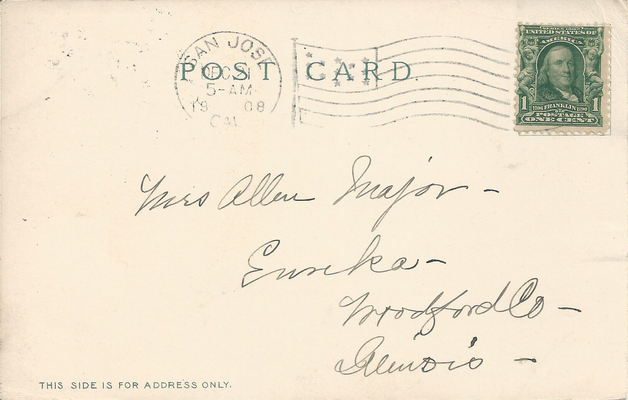 SAN JOSE
5-AM
1908
CAL
POST CARD.
UNITED STATES OF
AMERICA
1 FRANKLIN 1
POSTAGE
ONE CENT
Mrs Allen Major -
Eureka -
Woodford Co -
Illinois -
THIS SIDE IS FOR ADDRESS ONLY.